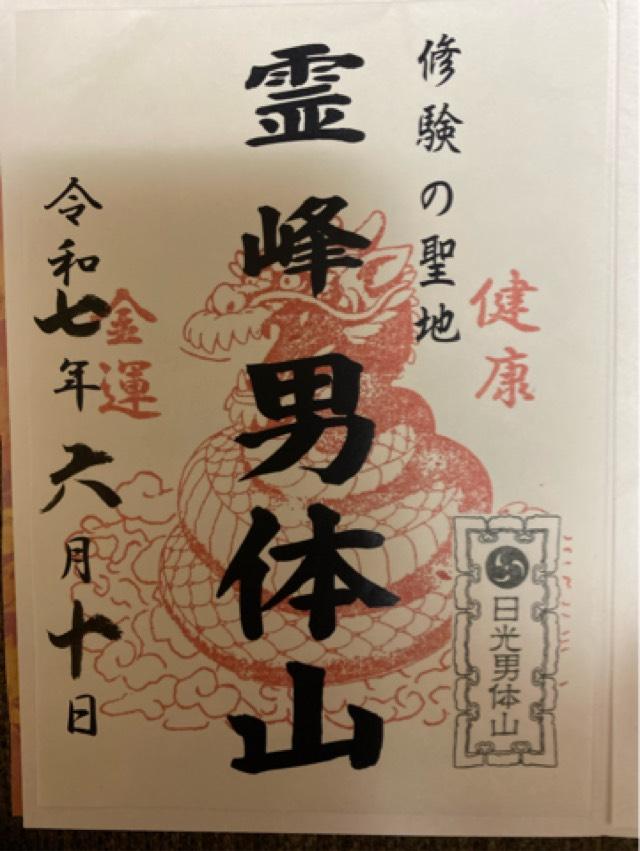 修験の聖地
健康
霊峰男体山
金運
令和七年六月十日
日光男体山